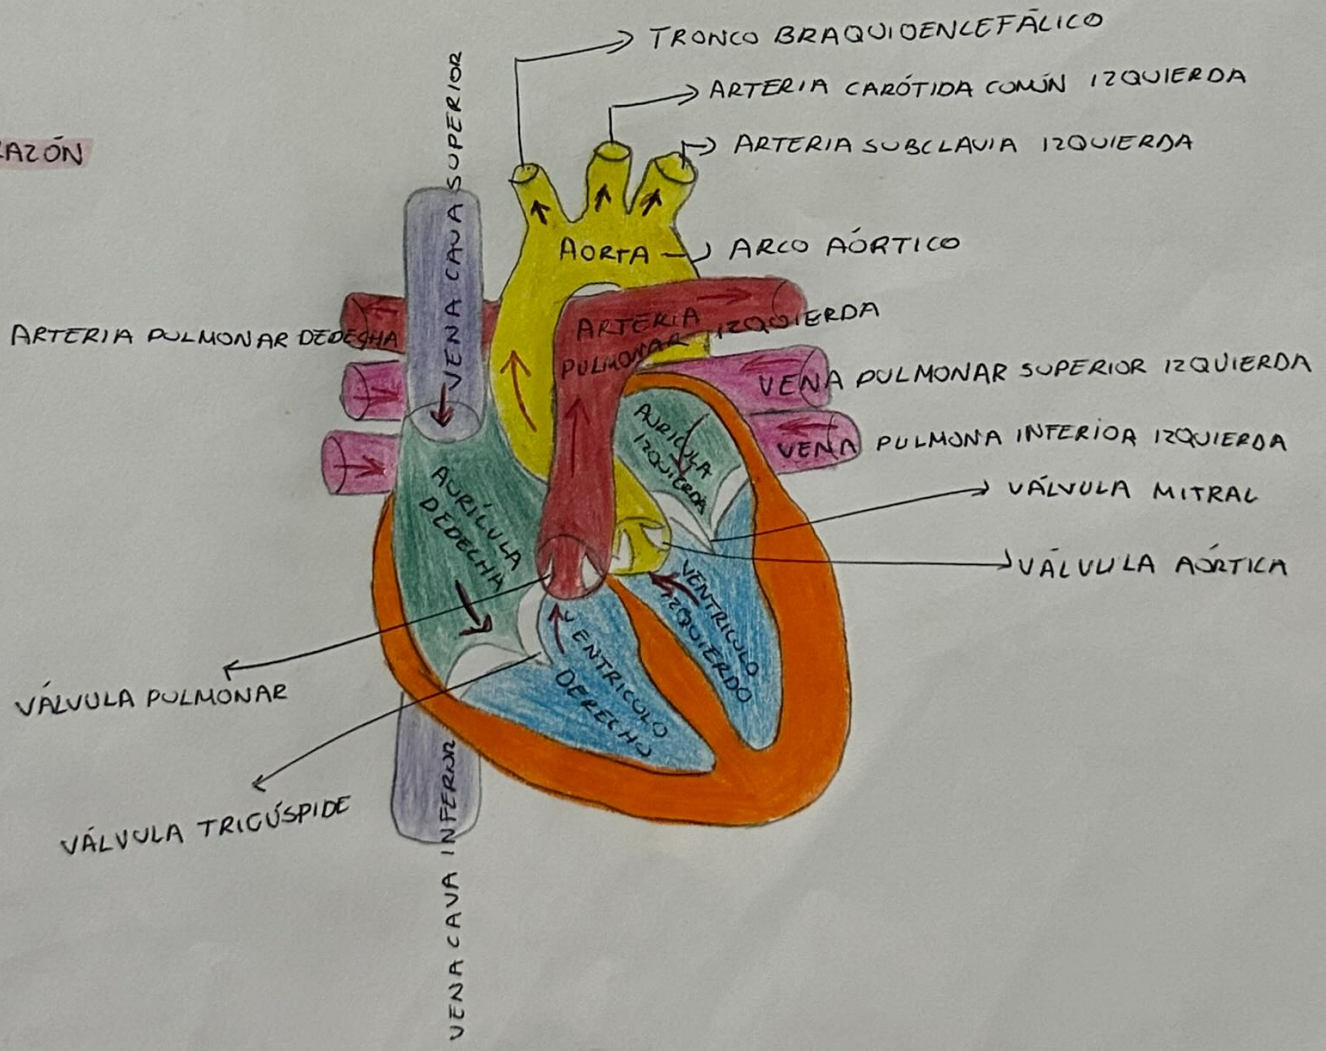 RAZÓN
TRONCO BRAQUIOENCEFÁLICO
ARTERIA CARÓTIDA COMÚN IZQUIERDA
ARTERIA SUBCLAVIA IZQUIERDA
VENA CAVA SUPERIOR
AORTA
ARCO AÓRTICO
ARTERIA PULMONAR DEDECHA
ARTERIA
PULMONAR IZQUIERDA
VENA PULMONAR SUPERIOR IZQUIERDA
VENA PULMONA INFERIOA IZQUIERDA
AURICULA
IZQUIERDA
AURÍCULA
DEDECHA
VÁLVULA MITRAL
VÁLVULA AÓRTICA
VENTRICULO
IZQUIERDO
VENTRICULO
DERECHO
VÁLVULA PULMONAR
VÁLVULA TRICÚSPIDE
VENA CAVA INFERIOR